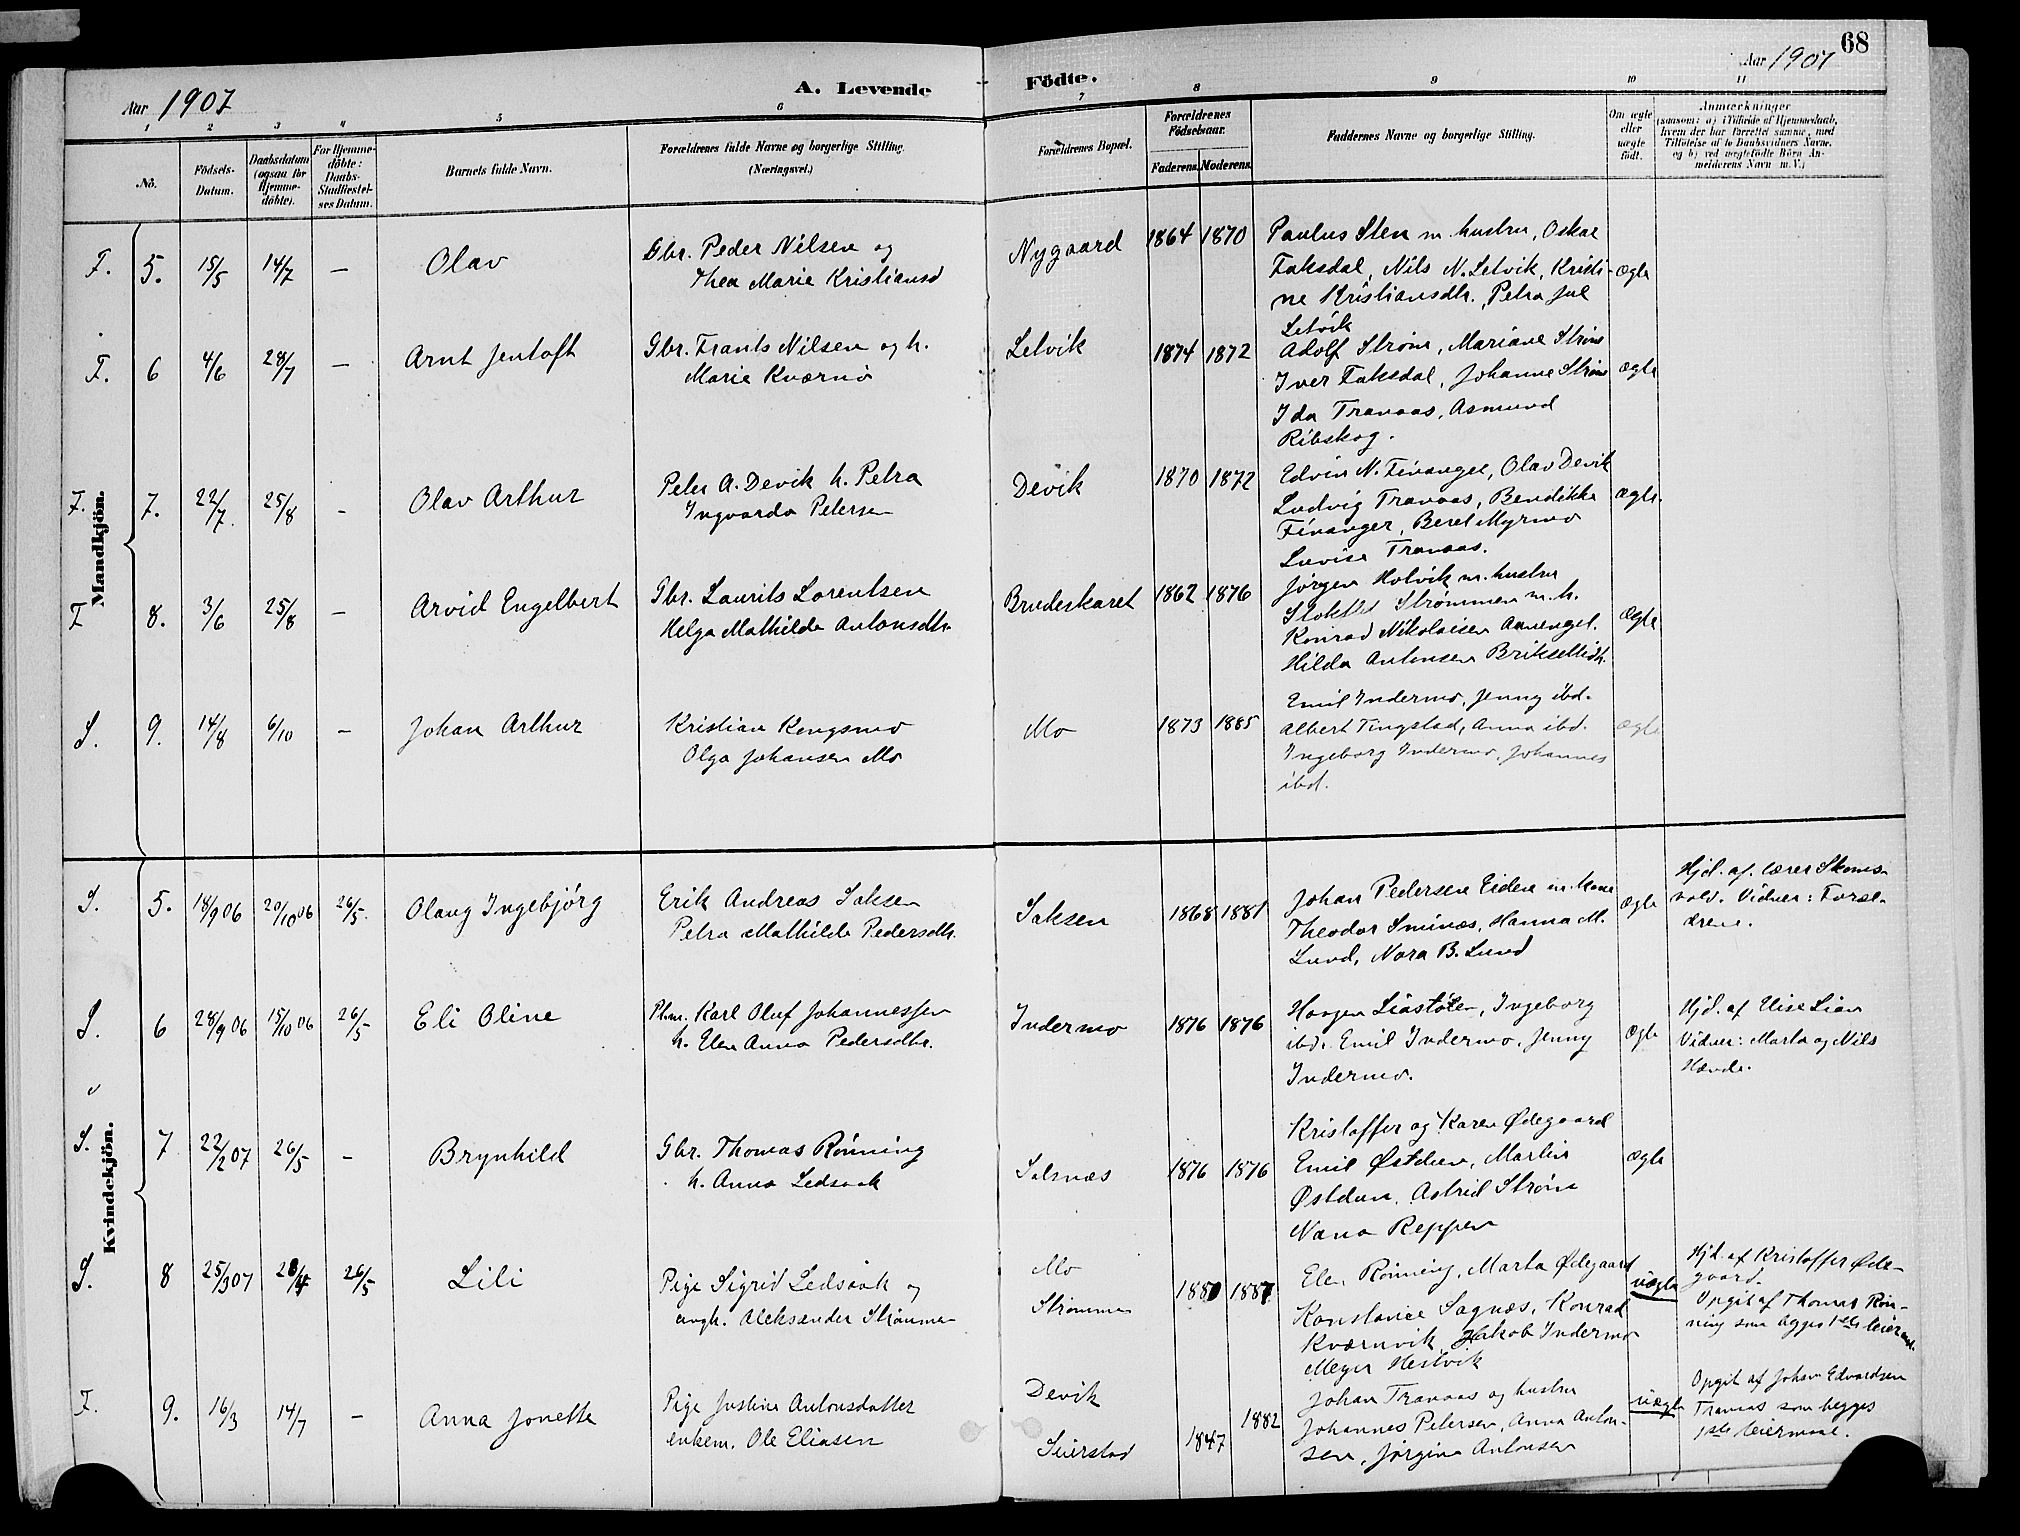 68
Aar 1907
A. Levende
Födte.
Aar 1907
1 2 3 4 5 6 7 8 9 10 11
No.
Födsels-
Datum.
Daabsdatum
(ogsaa for
Hjemme-
döbte).
For Hjemme-
döbte:
Daabs-
Stadfæstel-
ses Datum.
Barnets fulde Navn.
Forældrenes fulde Navne og borgerlige Stilling.
(Næringsvei.)
Forældrenes Bopæl.
Forældrenes
Födselsaar.
Faderens.
Moderens.
Faddernes Navne og borgerlige Stilling.
Om ægte
eller
uægte
født.
Anmærkninger
(saasom: a) i Tilfælde af Hjemmedaab,
hvem der har forrettet samme, med
Tilföielse af to Daabsvidners Navne,
og b) ved uægtefödte Börn An-
melderens Navn m. V.)
Mandkjön.
F. 5. 15/5 14/7 — Olav
Gbr. Peder Nilsen og
Thea Marie Kristiansd
Nygaard 1864 1870
Paulus Sten m. hustru, Oskar
Faksdal, Nils N. Letvik, Kristi-
ne Kristiansdtr., Petra Jul
Letvik
ægte
F. 6 4/6 28/7 — Arnt Jentoft
Gbr. Frants Nilsen og h.
Marie Kværnø
Letvik 1874 1872
Adolf Strøm, Mariane Strøm
Iver Faksdal, Johanne Strøm
Ida Tranaas, Asmund
Ribskog.
ægte
F. 7. 22/7 25/8 — Olav Arthur
Peter A. Devik h. Petra
Ingvarda Petersen
Devik 1870 1872
Edvin N. Finanger, Olav Devik
Ludvig Tranaas, Bendikke
Finanger, Beret Myrmo
Lovise Tranaas.
ægte.
F 8. 3/6 25/8 — Arvid Engelbert
Gbr. Laurits Lorentsen
Helga Mathilde Antonsdtr.
Brudeskaret 1862 1876
Jørgen Holvik m. hustru
Strømmen m. h.
Konrad Nikolaisen
Hilda Antonsen
Ægte
S. 9. 14/8 6/10 — Johan Arthur
Kristian Kongsmo
Olga Johansen Mo
Mo 1873 1885
Emil Indermo, Jenny ibd.
Albert Tingstad, Anna ibd.
Ingeborg Indermo, Johannes
ibd.
ægte
Kvindekjön.
S. 5. 18/9 06 20/10 06 26/5. Olaug Ingebjørg
Erik Andreas Saksen
Petra Mathilde Pedersdtr.
Saksen 1868 1881
Johan Pedersen Eiden m. kone
Theodor Sminæs, Hanna M.
Lund, Nora B. Lund
ægte
Hjd. af. lærer Skoms-
vold. Vidner: Foræl-
drene.
S. 6 28/9 06 15/10 06 26/5 Eli Oline
Plm. Karl Oluf Johannessen
h. Elen Anna Pedersdtr.
Indermo 1876 1876
Haagen Liastølen, Ingeborg
ibd. Emil Indermo, Jenny
Indermo.
ægte
Hjd. af Elise Lian
Vidner: Marta og Nils
S. 7 22/2 07 26/5 — Brynhild
Gbr. Thomas Rønning
h. Anna Ledsaak
Salsnæs 1876 1876
Kristoffer og Karen Ødegaard
Emil Østduun, Martin
Østduun, Astrid Strøm
Nana Reppen
ægte
S. 8 25/3 07 28/4 26/5 Lili
Pige Sigrid Ledsaak og
ungk. Aleksander Strømmen
Mo
Strømmen
1880 1887
Elen Rønning, Marta Ødegaard
Konstance Sagnæs, Konrad
Kværnvik, Jakob Indermo
Meyer Hestvik
uægte
Hjd. af Kristoffer Øde-
gaard.
Opgit af Thomas Røn-
ning som begges 1ste leiermaal.
F. 9. 16/3 14/7 — Anna Jonette
Pige Justine Antonsdatter
enkem. Ole Eliasen
Devik
Seierstad
1847 1882
Johan Tranaas og hustru
Johannes Petersen, Anna Anton-
sen, Jørgine Antonsen
uægte
Opgit af Johan Edvardsen
Tranaas som begges
1ste leiermaal.